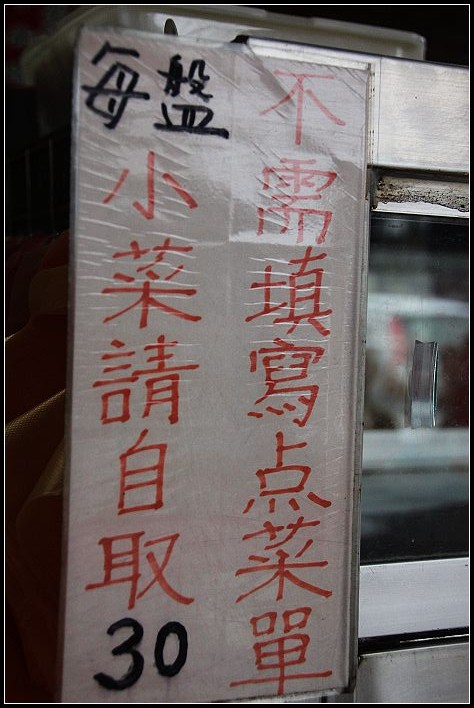 不需填寫点菜單
每盤
小菜請自取
30